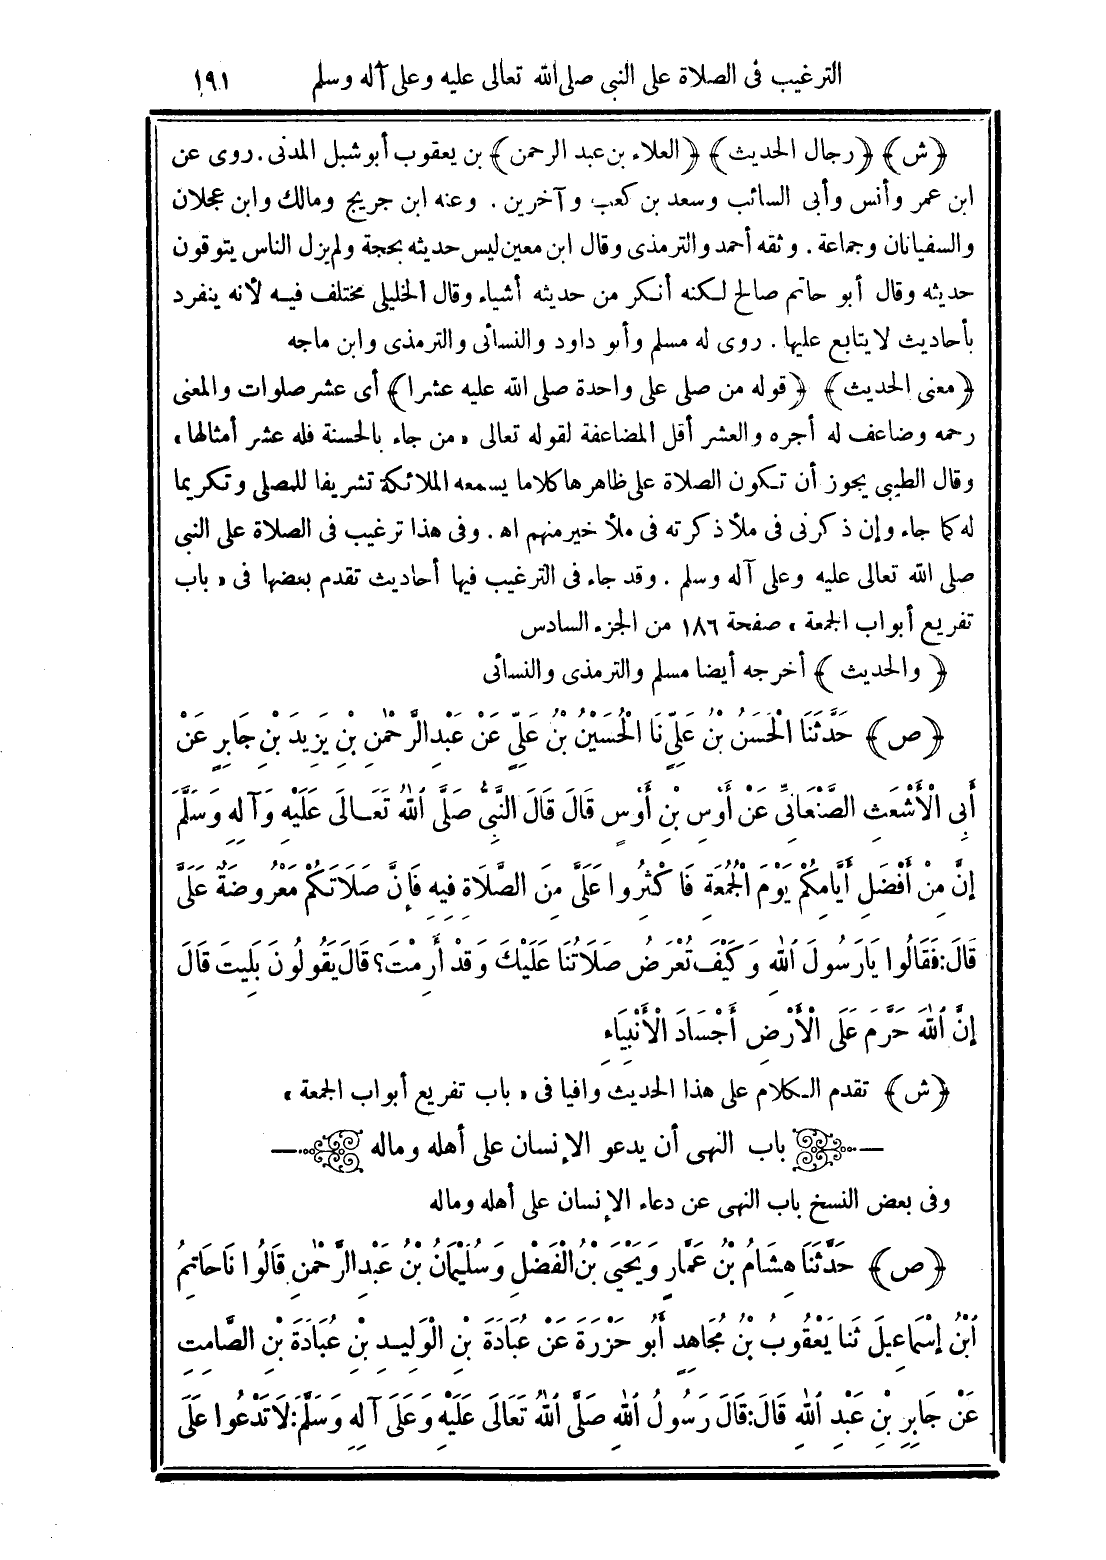 الترغيب فى الصلاة على النبى صلى الله تعالى عليه وعلى آله وسلم ١٩١
﴿ش﴾ ﴿رجال الحديث﴾ ﴿العلاء بن عبد الرحمن﴾ بن يعقوب أبو شبل المدنى. روى عن
ابن عمر وأنس وأبى السائب وسعد بن كعب وآخرين. وعنه ابن جريج ومالك وابن عجلان
والسفيانان وجماعة. وثقه أحمد والترمذى وقال ابن معين ليس حديثه بحجة ولم يزل الناس يتوقون
حديثه وقال أبو حاتم صالح لكنه أنكر من حديثه أشياء وقال الخليلى مختلف فيه لأنه ينفرد
بأحاديث لا يتابع عليها. روى له مسلم وأبو داود والنسائى والترمذى وابن ماجه
﴿معنى الحديث﴾ ﴿قوله من صلى على واحدة صلى الله عليه عشرا﴾ أى عشر صلوات والمعنى
رحمه وضاعف له أجره والعشر أقل المضاعفة لقوله تعالى «من جاء بالحسنة فله عشر أمثالها»
وقال الطيبى يجوز أن تكون الصلاة على ظاهرها كلاما يسمعه الملائكة تشريفا للمصلى وتكريما
له كما جاء وإن ذكرنى فى ملأ ذكرته فى ملأ خير منهم اه. وفى هذا ترغيب فى الصلاة على النبى
صلى الله تعالى عليه وعلى آله وسلم. وقد جاء فى الترغيب فيها أحاديث تقدم بعضها فى «باب
تفريع أبواب الجمعة» صفحة ١٨٦ من الجزء السادس
﴿والحديث﴾ أخرجه أيضا مسلم والترمذى والنسائى
﴿ص﴾ حَدَّثَنَا الْحَسَنُ بْنُ عَلِيٍّ نَا الْحُسَيْنُ بْنُ عَلِيٍّ عَنْ عَبْدِ الرَّحْمٰنِ بْنِ يَزِيدَ بْنِ جَابِرٍ عَنْ
أَبِى الْأَشْعَثِ الصَّنْعَانِىِّ عَنْ أَوْسِ بْنِ أَوْسٍ قَالَ قَالَ النَّبِىُّ صَلَّى اللهُ تَعَالَى عَلَيْهِ وَآلِهِ وَسَلَّمَ
إِنَّ مِنْ أَفْضَلِ أَيَّامِكُمْ يَوْمَ الْجُمُعَةِ فَأَكْثِرُوا عَلَىَّ مِنَ الصَّلَاةِ فِيهِ فَإِنَّ صَلَاتَكُمْ مَعْرُوضَةٌ عَلَىَّ
قَالَ: فَقَالُوا يَا رَسُولَ اللهِ وَكَيْفَ تُعْرَضُ صَلَاتُنَا عَلَيْكَ وَقَدْ أَرِمْتَ؟ قَالَ يَقُولُونَ بَلِيتَ قَالَ
إِنَّ اللهَ حَرَّمَ عَلَى الْأَرْضِ أَجْسَادَ الْأَنْبِيَاءِ
﴿ش﴾ تقدم الكلام على هذا الحديث وافيا فى «باب تفريع أبواب الجمعة»
باب النهى أن يدعو الإنسان على أهله وماله
وفى بعض النسخ باب النهى عن دعاء الإنسان على أهله وماله
﴿ص﴾ حَدَّثَنَا هِشَامُ بْنُ عَمَّارٍ وَيَحْيَى بْنُ الْفَضْلِ وَسُلَيْمَانُ بْنُ عَبْدِ الرَّحْمٰنِ قَالُوا نَا حَاتِمُ
ابْنُ إِسْمَاعِيلَ ثَنَا يَعْقُوبُ بْنُ مُجَاهِدٍ أَبُو حَزْرَةَ عَنْ عُبَادَةَ بْنِ الْوَلِيدِ بْنِ عُبَادَةَ بْنِ الصَّامِتِ
عَنْ جَابِرِ بْنِ عَبْدِ اللهِ قَالَ: قَالَ رَسُولُ اللهِ صَلَّى اللهُ تَعَالَى عَلَيْهِ وَعَلَى آلِهِ وَسَلَّمَ: لَا تَدْعُوا عَلَى